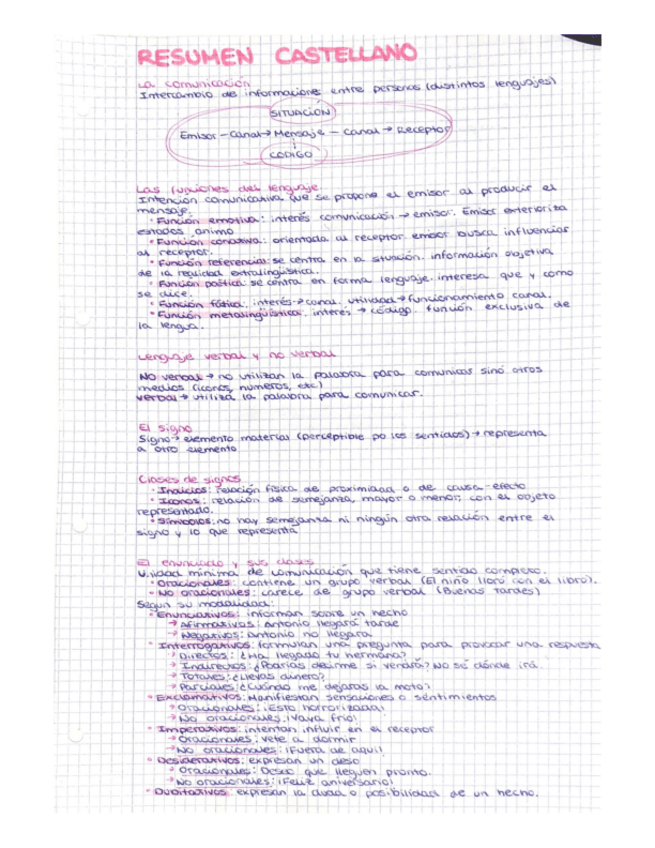 RESUMEN CASTELLANO
La comunicación
Intercambio de informaciones entre personas (distintos lenguajes)
SITUACIÓN
Emisor - Canal → Mensaje - Canal → Receptor
CÓDIGO
Las funciones del lenguaje
Intención comunicativa que se propone el emisor al producir el
mensaje.
· Función emotiva: interés comunicación → emisor. Emisor exterioriza
estados ánimo
· Función conativa: orientada al receptor emisor busca influenciar
al receptor.
· Función referencial: se centra en la situación. información objetiva
de la realidad extralingüística.
· Función poética: se centra en forma lenguaje. interesa que y como
se dice.
· Función fática: interés → canal. utilidad → funcionamiento canal.
· Función metalingüística: interés → código. función exclusiva de
la lengua.
Lenguaje verbal y no verbal
NO verbal → no utilizan la palabra para comunicas sinó otros
medios (iconos, números, etc)
verbal → utiliza la palabra para comunicar.
El signo
Signo → elemento material (perceptible po los sentidos) → representa
a otro elemento
Clases de signos
· Indicios: relación física de proximidad o de causa-efecto
· Iconos: relación de semejanza, mayor o menor, con el objeto
representado.
· Símbolos: no hay semejanza ni ningún otra relación entre el
signo y lo que representa
El enunciado y sus clases
Unidad mínima de comunicación que tiene sentido completo.
· Oracionales: contiene un grupo verbal (El niño lloró con el libro).
· No oracionales: carece de grupo verbal (Buenas tardes)
Según su modalidad:
· Enunciativos: informan sobre un hecho
→ Afirmativas: Antonio llegará tarde
→ Negativos: Antonio no llegara
· Interrogativos: formulan una pregunta para provocar una respuesta
→ Directos: ¿Ha llegado tu hermana?
→ Indirectos: ¿Podrias decirme si vendrá? No sé dónde irá.
→ Totales: ¿Llevas dinero?
→ Parciales: ¿Cuándo me dejarás la moto?
· Exclamativos: Manifiestan sensaciones o sentimientos
→ Oracionales: ¡Estó horrorizada!
→ No oracionales: ¡Vaya frio!
· Imperativos: intentan influir en el receptor
→ Oracionales: vete a dormir
→ No oracionales: ¡Fuera de aqui!
· Desiderativos: expresan un deso
→ Oracionales: Deseo que lleguen pronto.
→ No oracionales: ¡Feliz aniversario!
· Dubitativos: expresan la duda o posibilidad de un hecho.